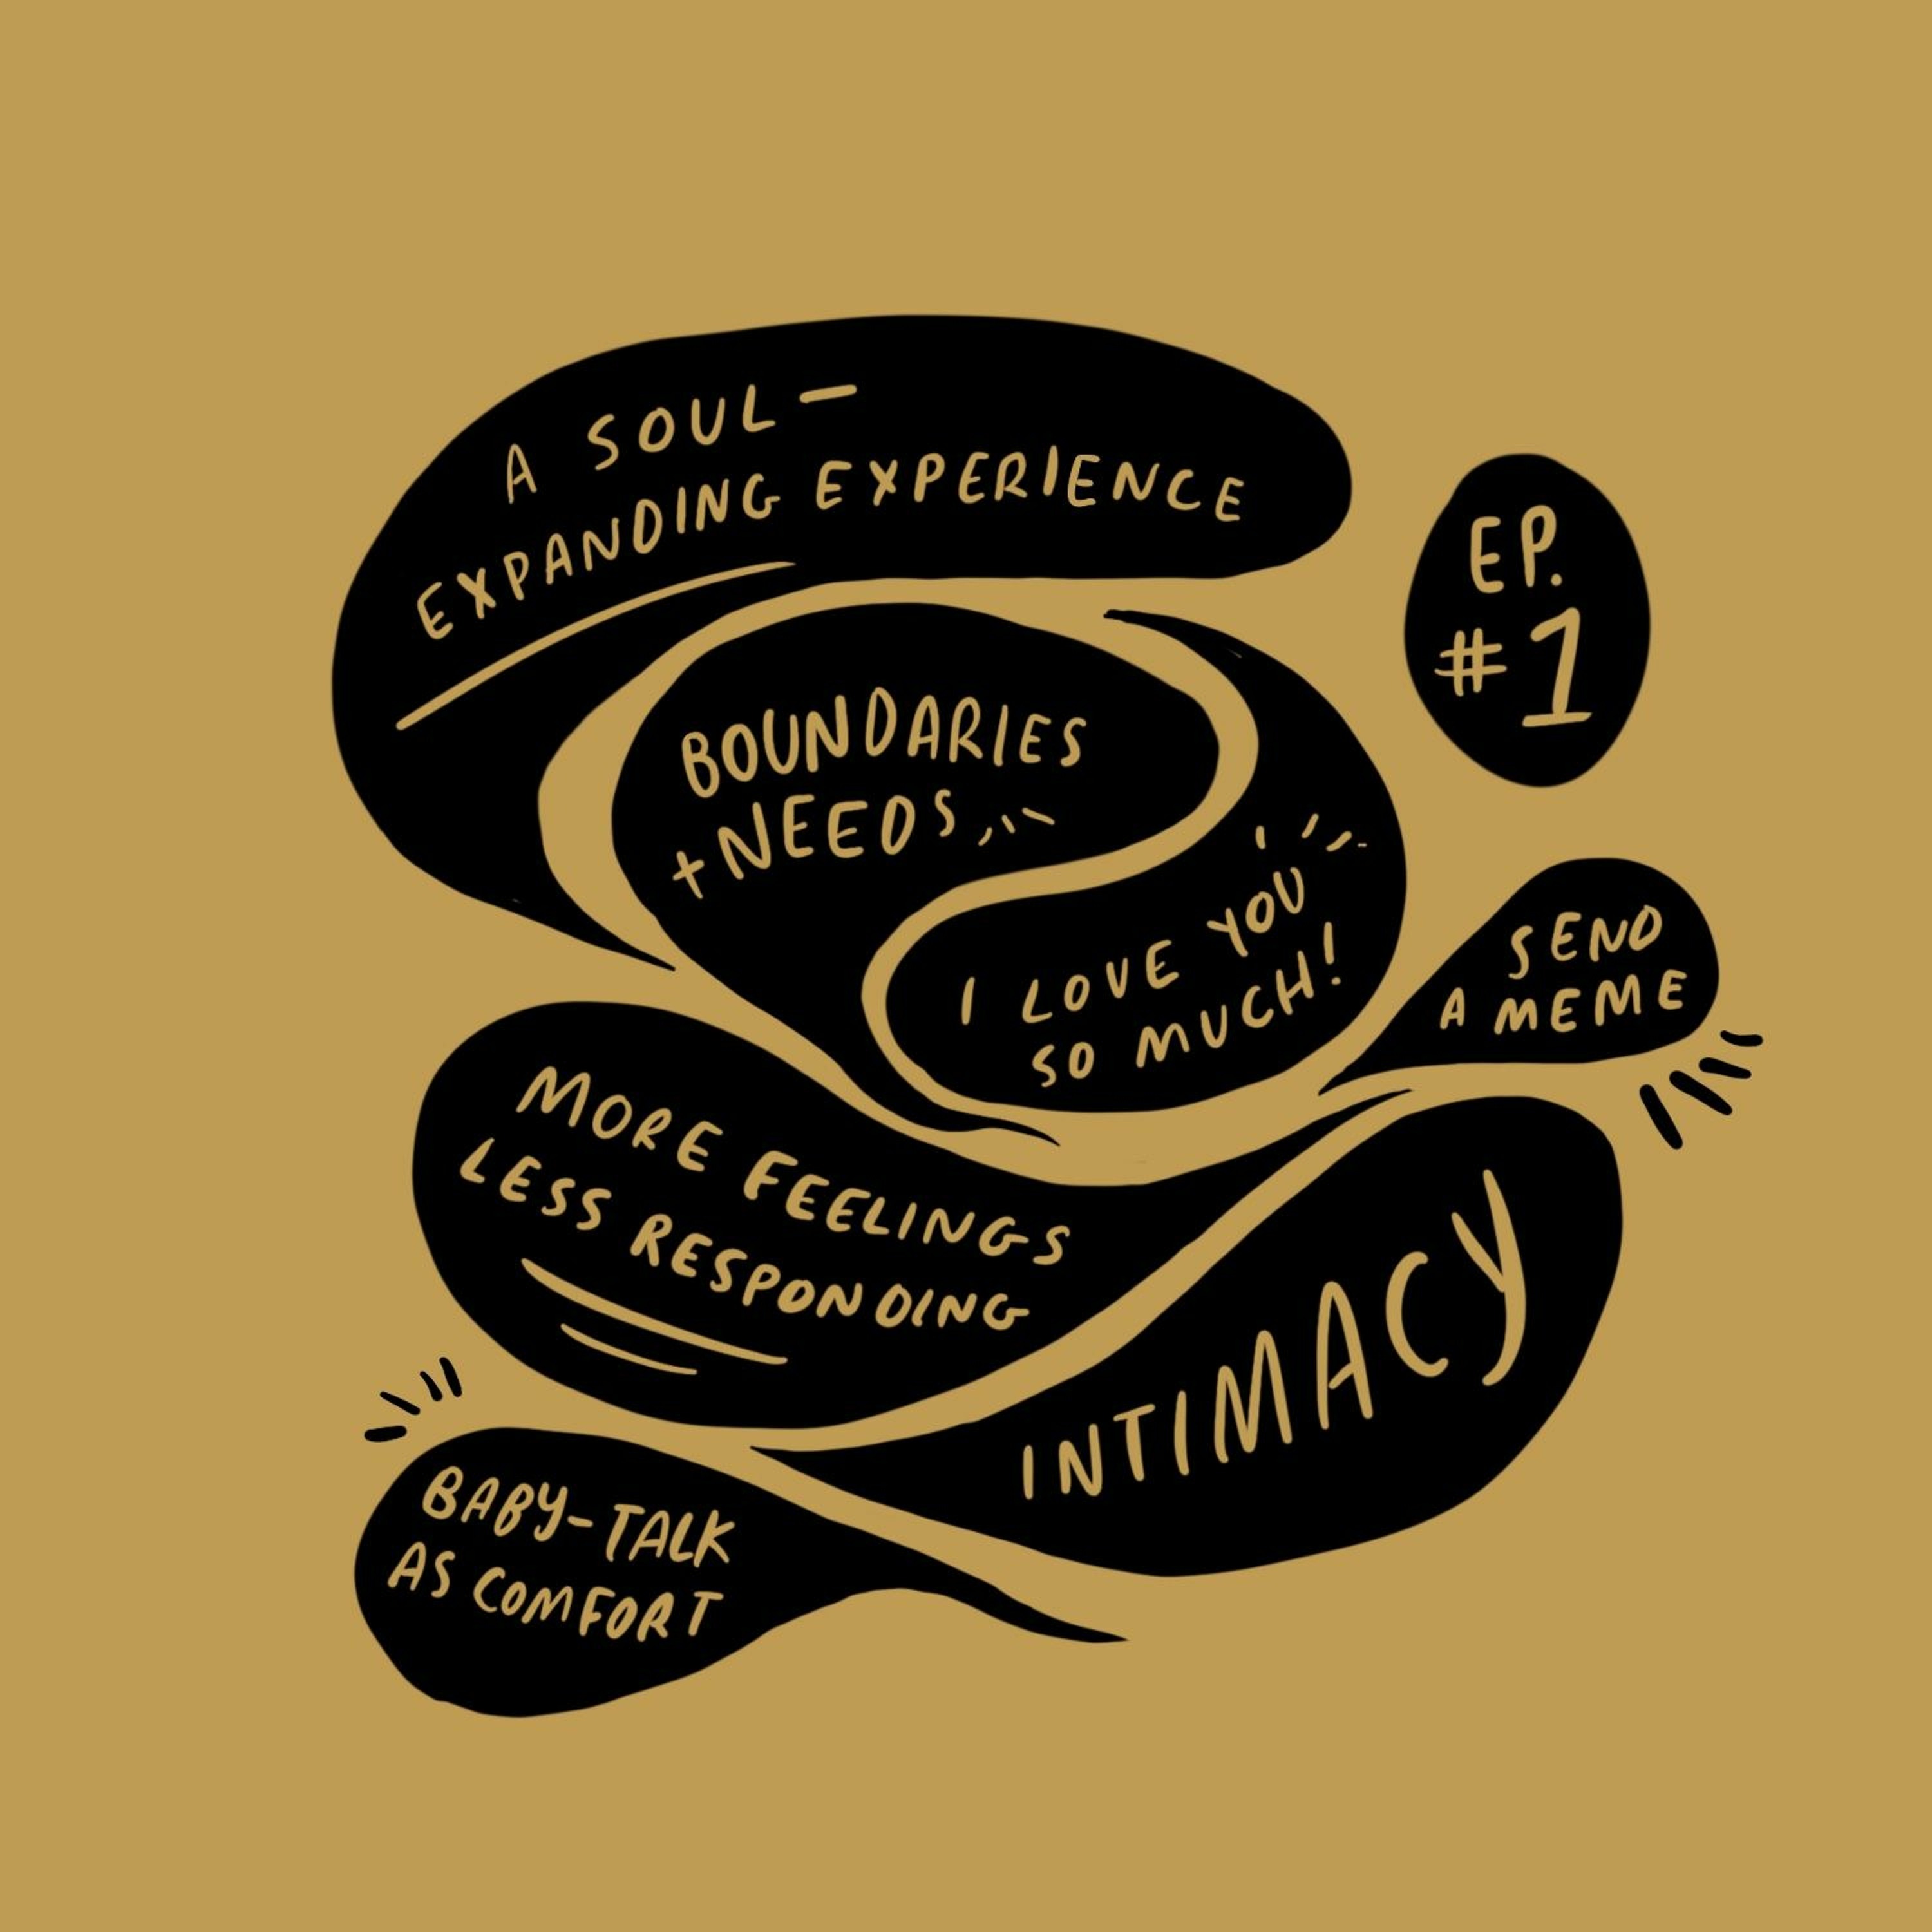 A SOUL—
EXPANDING EXPERIENCE
EP.
#1
BOUNDARIES
+NEEDS
I LOVE YOU
SO MUCH!
SEND
A MEME
MORE FEELINGS
LESS RESPONDING
INTIMACY
BABY-TALK
AS COMFORT